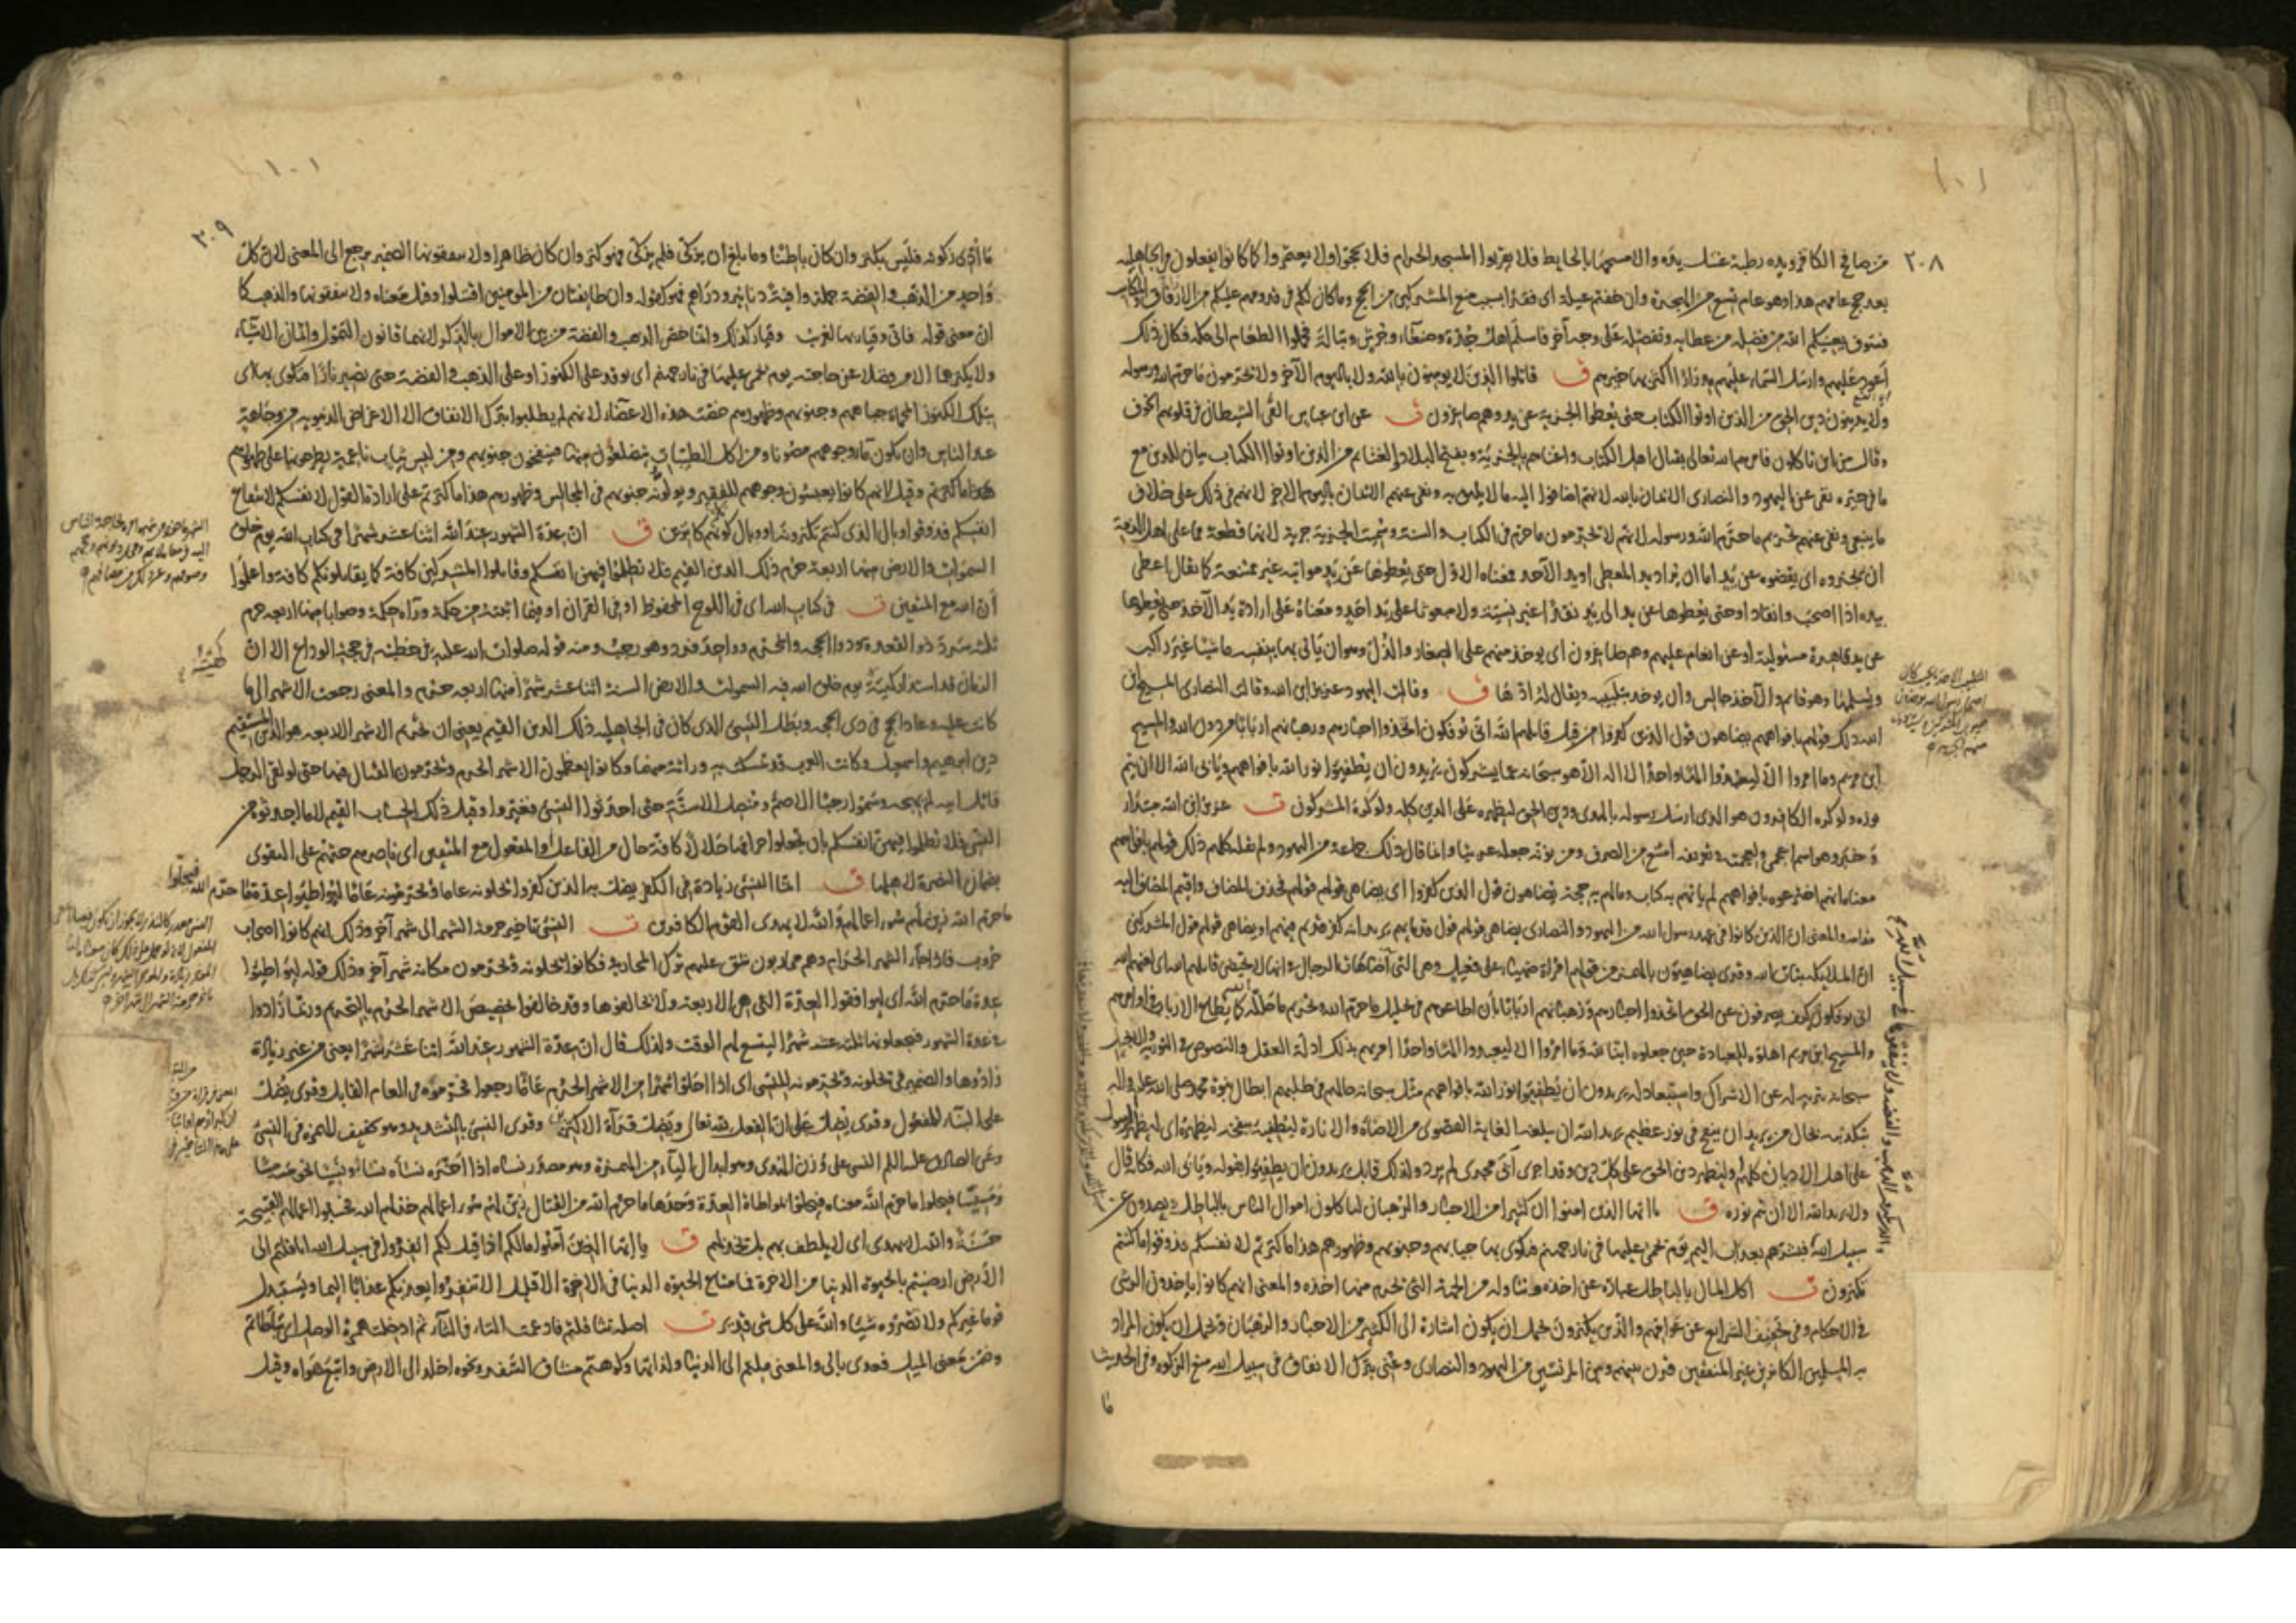 ١٠١
٢٠٨
من صافح الكافر ويده رطبة غسل يده والا مسحها بالحايط فلا يقربوا المسجد الحرام فلا يحجوا ولا يعتمروا كما كانوا يفعلون في الجاهلية
بعد حج عامهم هذا وهو عام تسع من الهجرة وان خفتم عيلة اى فقرا بسبب منع المشركين من الحج وما كان لكم في قدومهم عليكم من الارفاق والمكاسب
فسوف يغنيكم الله من فضله من عطايه وتفضله على وجه آخر فاسلم اهل جدة وصنعاء وجرش وتبالة فحملوا الطعام الى مكة فكان ذلك
اعود عليهم وارسل السماء عليهم مدرارا اكثر بها خيرهم ق قاتلوا الذين لا يومنون بالله ولا باليوم الآخر ولا يحرمون ما حرم الله ورسوله
ولا يدينون دين الحق من الذين اوتوا الكتاب حتى يعطوا الجزية عن يد وهم صاغرون ت عن ابن عباس القى الشيطان في قلوبهم الخوف
وقال من اين تاكلون فامرهم الله تعالى بقتال اهل الكتاب واغناهم بالجزية وبفتح البلاد والغنايم من الذين اوتوا الكتاب بيان للذين مع
ما في حيزه نفى عن اليهود والنصارى الايمان بالله لانهم اضافوا اليه ما لا يليق به ونفى عنهم الايمان باليوم الاخر لانهم في ذلك على خلاف
ما ينبغى ونفى عنهم تحريم ما حرم الله ورسوله لانهم لا يحرمون ما حرم في الكتاب والسنة وسميت الجزية جزية لانها قطعة مما على اهل الذمة
ان يجزوه اى يقضوه عن يد اما ان يراد يد المعطى او يد الآخذ فمعناه الاول حتى يعطوها عن يد مواتية غير ممتنعة كما يقال اعطى
بيده اذا اصحب وانقاد او حتى يعطوها عن يد الى يد نقدا غير نسيئة ولا مبعوثا على يد احد ومعناه على ارادة يد الآخذ حتى يعطوها
عن يد قاهرة مستولية او عن انعام عليهم وهم صاغرون اى يوخذ منهم على الصغار والذل وهو ان ياتى بها بنفسه ماشيا غير راكب
ويسلمها وهو قايم والآخذ جالس وان يوخذ بتلبيبه ويقال له ادّها ق وقالت اليهود عزير ابن الله وقالت النصارى المسيح ابن
الله ذلك قولهم بافواههم يضاهون قول الذين كفروا من قبل قاتلهم الله انى يوفكون اتخذوا احبارهم ورهبانهم اربابا من دون الله والمسيح
ابن مريم وما امروا الا ليعبدوا الها واحدا لا اله الا هو سبحانه عما يشركون يريدون ان يطفئوا نور الله بافواههم ويابى الله الا ان يتم
نوره ولو كره الكافرون هو الذى ارسل رسوله بالهدى ودين الحق ليظهره على الدين كله ولو كره المشركون ت عزير ابن الله مبتدا
وخبر وهو اسم اعجمى ولعجمته وتعريفه امتنع من الصرف ومن نونه جعله عربيا وانما قال ذلك جماعة من اليهود ولم يقله كلهم ذلك قولهم بافواههم
معناه انهم اخترعوه بافواههم لم ياتهم به كتاب وما لهم به حجة يضاهون قول الذين كفروا اى يضاهى قولهم قولهم فحذف المضاف واقيم المضاف اليه
مقامه والمعنى ان الذين كانوا في عهد رسول الله من اليهود والنصارى يضاهى قولهم قول قدمايهم يريد انه كفر قديم فيهم او يضاهى قولهم قول المشركين
ان الملايكة بنات الله
انى يوفكون كيف يصرفون عن الحق اتخذوا احبارهم ورهبانهم اربابا بان اطاعوهم في تحليل ما حرم الله وتحريم ما حلله كما يطاع الارباب في اوامرهم
والمسيح ابن مريم اهلوه للعبادة حين جعلوه ابنا لله وما امروا الا ليعبدوا الها واحدا امرهم بذلك ادلة العقل والنصوص في التورية والانجيل
سبحانه تنزيه له عن الاشراك واستبعاد له يريدون ان يطفئوا نور الله بافواههم مثل سبحانه حالهم في طلبهم ابطال نبوة محمد صلى الله عليه واله
بتكذيبه بحال من يريد ان ينفخ في نور عظيم يريد الله ان يبلغه الغاية القصوى من الاضاءة والانارة ليطفيه بنفخه ليظهره اى ليظهر الرسول
على اهل الاديان كلهم او ليظهر دين الحق على كل دين وقد اجرى ابى مجرى لم يرد ولذلك قابل يريدون ان يطفئوا بقوله ويابى الله فكانه قال
ولا يريد الله الا ان يتم نوره ق يا ايها الذين امنوا ان كثيرا من الاحبار والرهبان لياكلون اموال الناس بالباطل ويصدون عن
سبيل الله فبشرهم بعذاب اليم يوم يحمى عليها في نار جهنم فتكوى بها جباههم وجنوبهم وظهورهم هذا ما كنزتم لانفسكم فذوقوا ما كنتم
تكنزون ت اكل المال بالباطل عبارة عن اخذه وتناوله من الجهة التى تحرم منها اخذه والمعنى انهم كانوا ياخذون الرشى
في الاحكام وفي تخفيف الشرايع عن عوامهم والذين يكنزون يحتمل ان يكون اشارة الى الكثير من الاحبار والرهبان ويحتمل ان يكون المراد
به المسلمين الكانزين غير المنفقين قرن بينهم وبين المرتشين من اليهود والنصارى وعنى بترك الانفاق في سبيل الله منع الزكوة وفى الحديث
ما
والذين يكنزون الذهب والفضة ولا ينفقونها في سبيل الله
١٠١
٢٠٩
ما ادى زكوته فليس بكنز وان كان باطنا وما بلغ ان يزكى فلم يزك فهو كنز وان كان ظاهرا ولا ينفقونها الضمير يرجع الى المعنى لان كل
واحد من الذهب والفضة جملة وافية دنانير ودراهم فهو كقوله وان طايفتان من المومنين اقتتلوا وقيل معناه ولا ينفقونها والذهب كما
ان معنى قوله فانى وقيار بها لغريب وقيار كذلك وانما خص الذهب والفضة من بين الاموال بالذكر لانهما قانون التمول واثمان الاشياء
ولا يكنزهما الا من فضلا عن حاجته يوم يحمى عليها في نار جهنم اى يوقد على الكنوز او على الذهب والفضة حتى يصير نارا فتكوى بها اى
بتلك الكنوز المحماة جباههم وجنوبهم وظهورهم خصت هذه الاعضاء لانهم لم يطلبوا بترك الانفاق الا الاغراض الدنيوية من وجاهة
عند الناس وان يكون ماء وجوههم مصونا ومن اكل الطيبات يتضلعون منها فينفخون جنوبهم ومن لبس ثياب ناعمة يطرحونها على ظهورهم
وقيل لانهم كانوا يعبسون وجوههم للفقير ويولونه جنوبهم في المجالس وظهورهم هذا ما كنزتم على ارادة القول لانفسكم لانتفاع
انفسكم فذوقوا وبال الذى كنتم تكنزونه او وبال كونكم كانزين ق ان عدة الشهور عند الله اثنا عشر شهرا في كتاب الله يوم خلق
السموات والارض منها اربعة حرم ذلك الدين القيم فلا تظلموا فيهن انفسكم وقاتلوا المشركين كافة كما يقاتلونكم كافة واعلموا
ان الله مع المتقين ت في كتاب الله اى في اللوح المحفوظ او في القران او فيما اثبته من حكمه وراه حكمة وصوابا منها اربعة حرم
ثلثة سرد ذو القعدة وذو الحجة والمحرم وواحد فرد وهو رجب ومنه قوله صلوات الله عليه في خطبته في حجة الوداع الا ان
الزمان قد استدار كهيئته يوم خلق الله فيه السموات والارض السنة اثنا عشر شهرا منها اربعة حرم والمعنى رجعت الاشهر الى ما
كانت عليه وعاد الحج في ذى الحجة وبطل النسئ الذى كان في الجاهلية ذلك الدين القيم يعنى ان تحريم الاشهر الاربعة هو الدين المستقيم
دين ابرهيم واسمعيل وكانت العرب قد تمسكت به وراثة منهما وكانوا يعظمون الاشهر الحرم ويحرمون القتال فيها حتى لو لقى الرجل
قاتل ابيه لم يهجه وسموا رجبا الاصم ومنصل الاسنة حتى احدثوا النسئ فغيروا وقيل ذلك الحساب القيم لا ما احدثوه من
النسئ فلا تظلموا فيهن انفسكم بان تجعلوا حرامها حلالا كافة حال من الفاعل او المفعول مع المتقين اى ناصرهم حثهم على التقوى
بضمان النصرة لاهلها ق انما النسئ زيادة في الكفر يضل به الذين كفروا يحلونه عاما ويحرمونه عاما ليواطئوا عدة ما حرم الله فيحلوا
ما حرم الله زين لهم سوء اعمالهم والله لا يهدى القوم الكافرين ت النسئ تاخير حرمة الشهر الى شهر آخر وذلك انهم كانوا اصحاب
حروب فاذا جاء الشهر الحرام وهم محاربون شق عليهم ترك المحاربة فكانوا يحلونه ويحرمون مكانه شهر آخر وذلك قوله ليواطئوا
عدة ما حرم الله اى ليوافقوا العدة التى هى الاربعة ولا يخالفوها وقد خالفوا تخصيص الاشهر الحرم بالتحريم وربما زادوا
في عدة الشهور فيجعلونها ثلثة عشر شهرا ليتسع لهم الوقت ولذلك قال ان عدة الشهور عند الله اثنا عشر شهرا يعنى من غير زيادة
زادوها والضمير في يحلونه ويحرمونه للنسئ اى اذا احلوا شهرا من الاشهر الحرم عاما رجعوا فحرموه في العام القابل وقرى يضل
على البناء للمفعول وقرى يضل على ان الفعل لله تعالى ويضل قراءة الاكثرين وقرى النسئ بالتشديد وهو تخفيف الهمزة في النسئ
وعن الصادق عليه السلم النسى على وزن الهدى وهو ابدال الياء من الهمزة وهو مصدر نساه اذا اخره نساه نسا ونسيا نحو مسه مسا
ومسيسا فيحلوا ما حرم الله معناه فيحلوا بمواطاة العدة وحدها ما حرم الله من القتال زين لهم سوء اعمالهم خذلهم الله فحسبوا اعمالهم القبيحة
حسنة والله لا يهدى اى لا يلطف بهم بل يخذلهم ق يا ايها الذين آمنوا ما لكم اذا قيل لكم انفروا في سبيل الله اثاقلتم الى
الارض ارضيتم بالحيوة الدنيا من الاخرة فما متاع الحيوة الدنيا في الاخرة الا قليل الا تنفروا يعذبكم عذابا اليما ويستبدل
قوما غيركم ولا تضروه شيئا والله على كل شئ قدير ت اصله تثاقلتم فادغمت التاء في الثاء ثم ادخلت همزة الوصل اى تباطاتم
وضمن معنى الميل فعدى بالى والمعنى ملتم الى الدنيا ولذاتها وكرهتم مشاق السفر ونحوه اخلد الى الارض واتبع هواه وقيل